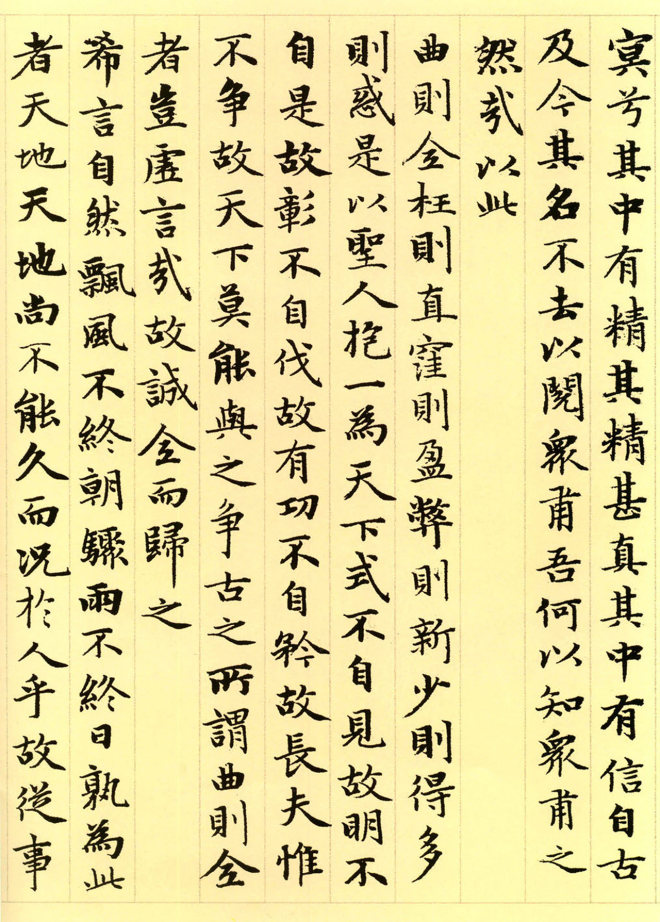 冥兮其中有精其精甚真其中有信自古
及今其名不去以閱衆甫吾何以知衆甫之
然哉以此
曲則全枉則直窪則盈弊則新少則得多
則惑是以聖人抱一為天下式不自見故明不
自是故彰不自伐故有功不自矜故長夫惟
不争故天下莫能與之争古之所謂曲則全
者豈虛言哉故誠全而歸之
希言自然飄風不終朝驟雨不終日孰為此
者天地天地尚不能久而況於人乎故從事